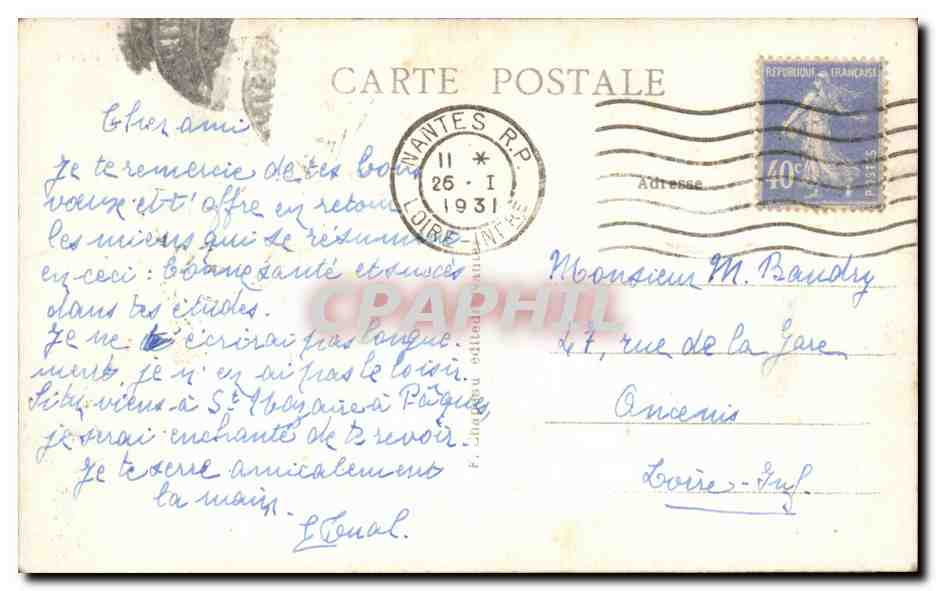 CARTE POSTALE
Cher ami
Je te remercie de tes bons
voeux et t'offre en retour
les miens qui se résument
en ceci : bonne santé et succès
dans tes études.
Je ne t'écrirai pas longue-
ment, je n'en ai pas le loisir.
Si tu viens à St Nazaire à Pâques,
je serai enchanté de te revoir.
Je te serre amicalement
la main.
NANTES R.P.
11 *
26 - I
1931
LOIRE-INFRE
REPUBLIQUE FRANÇAISE
40c
POSTES
Adresse
Monsieur M. Baudry
47, rue de la Gare
Ancenis
Loire-Inf.
CPAPHIL